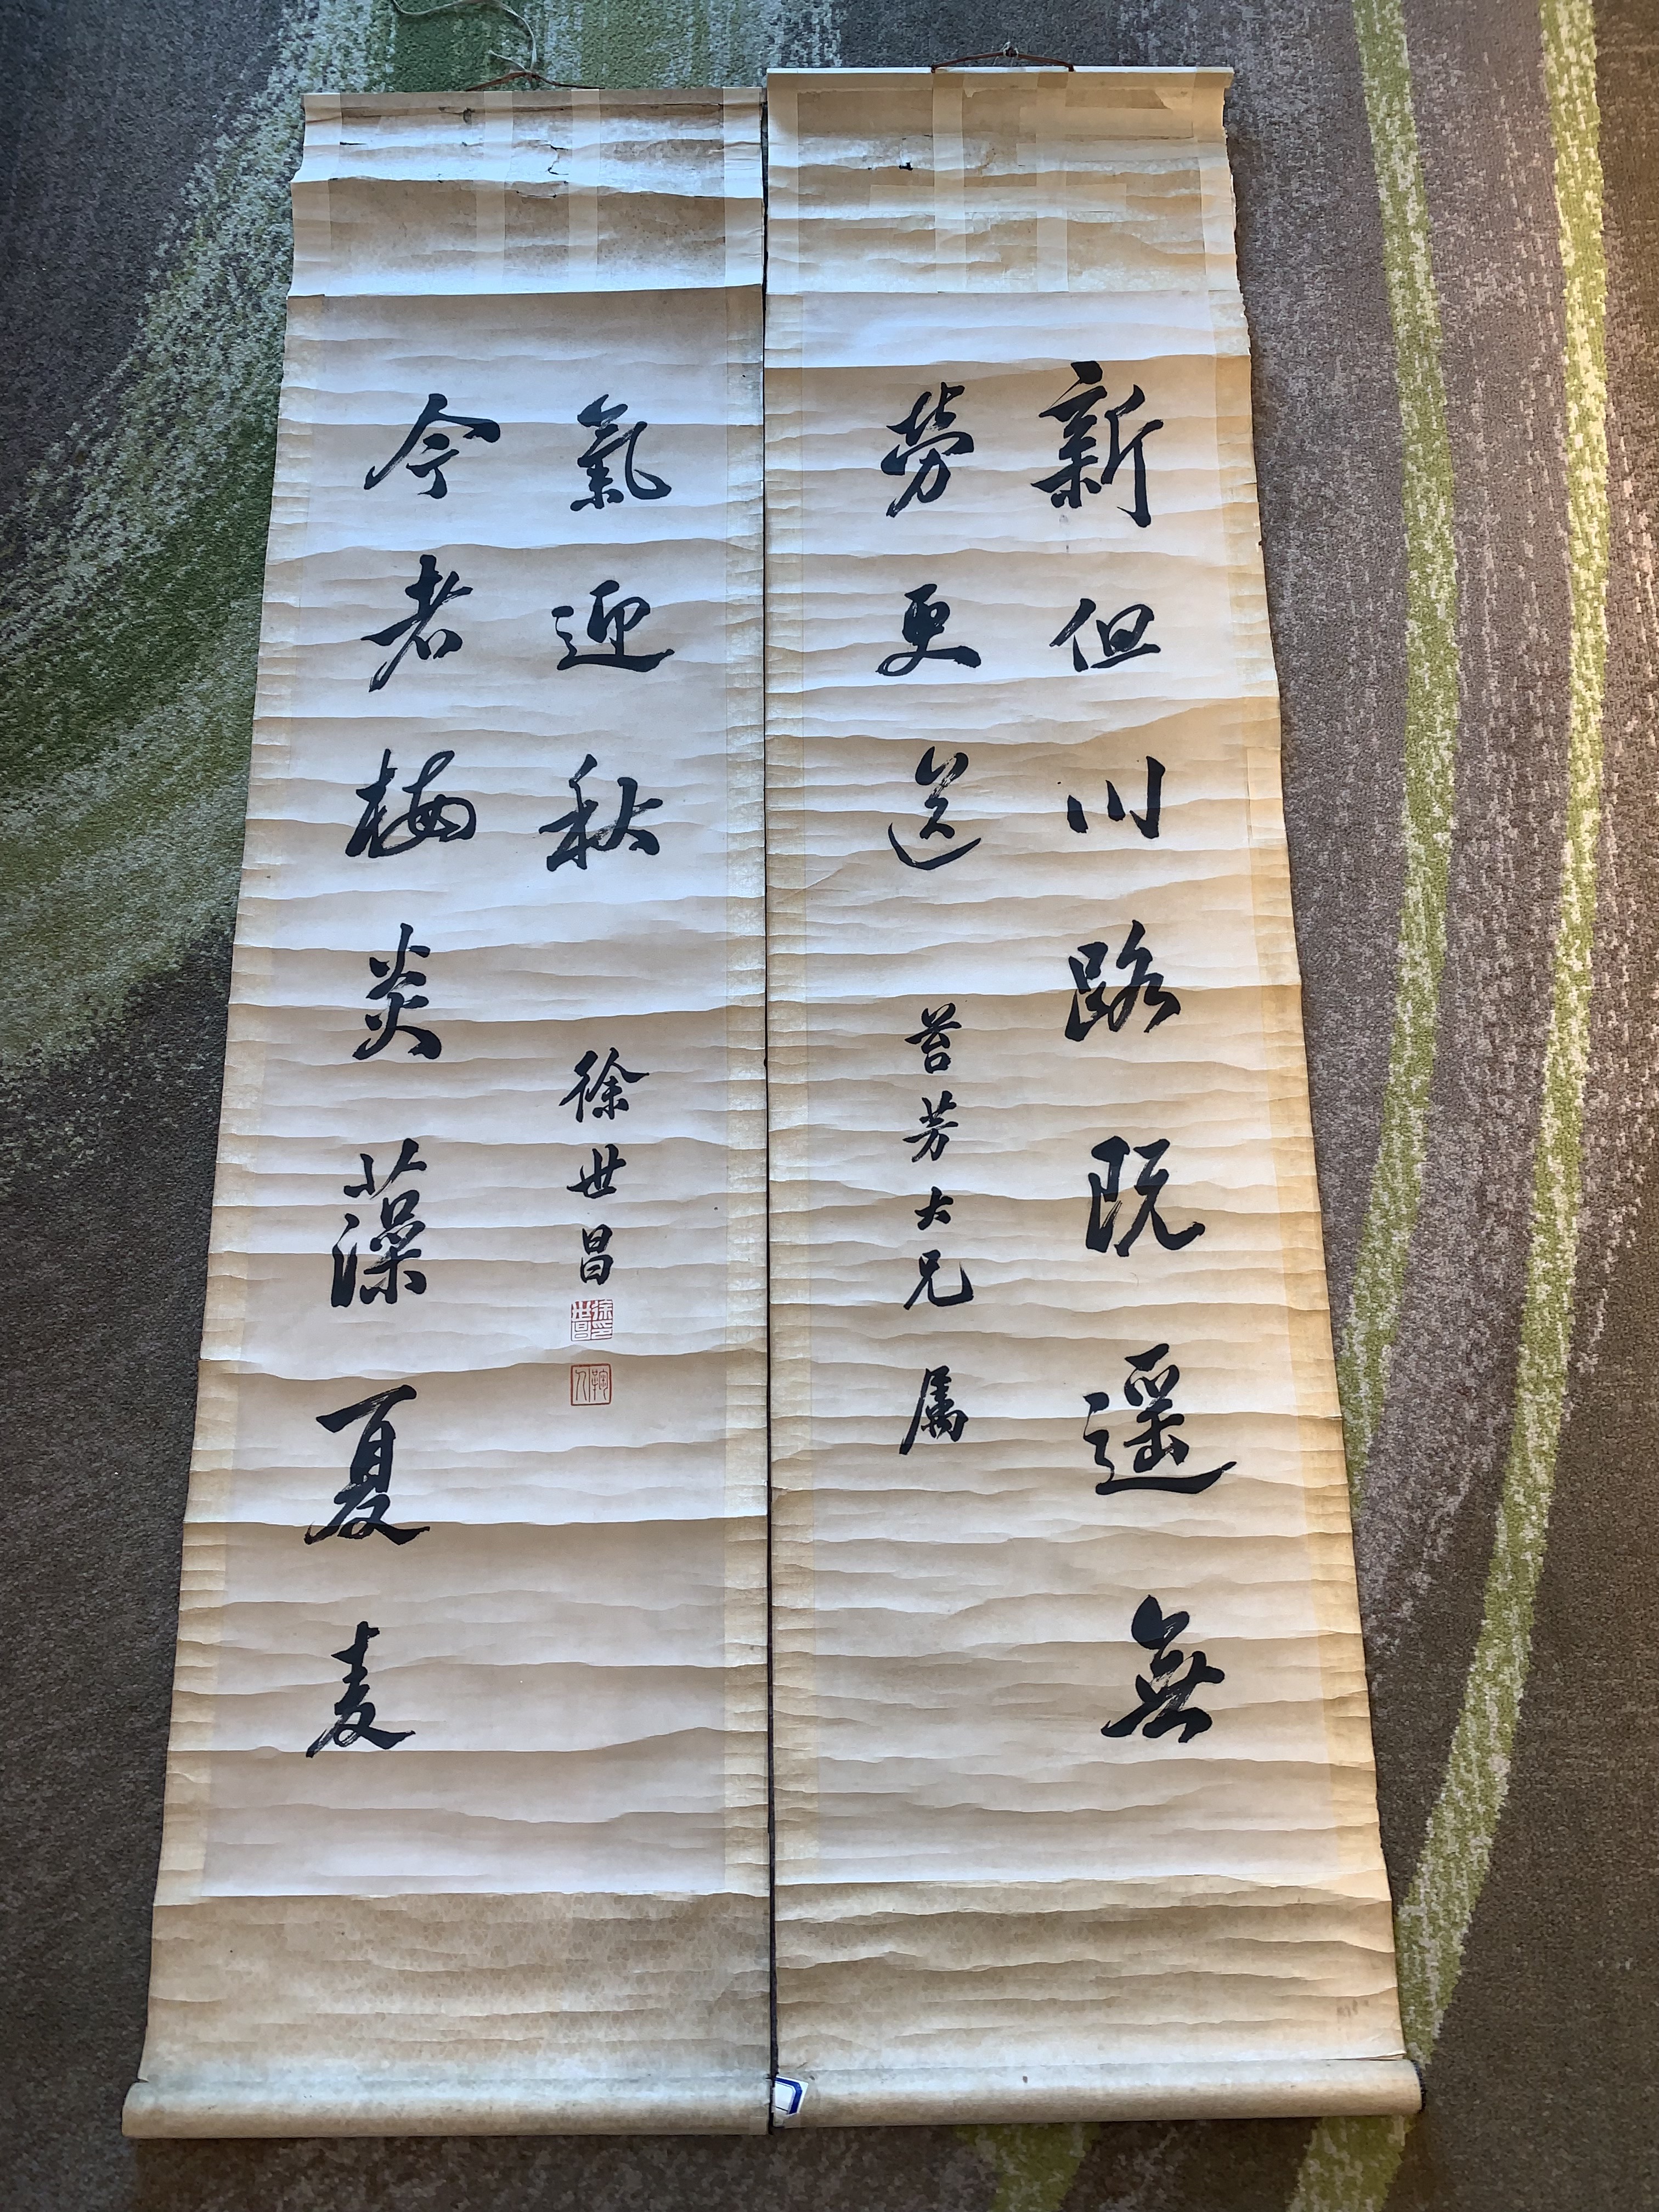 新但川路既遥無
劳更送
苔芳大兄属
今者梅炎藻夏麦
氣迎秋
徐世昌
徐印世昌
鞠人